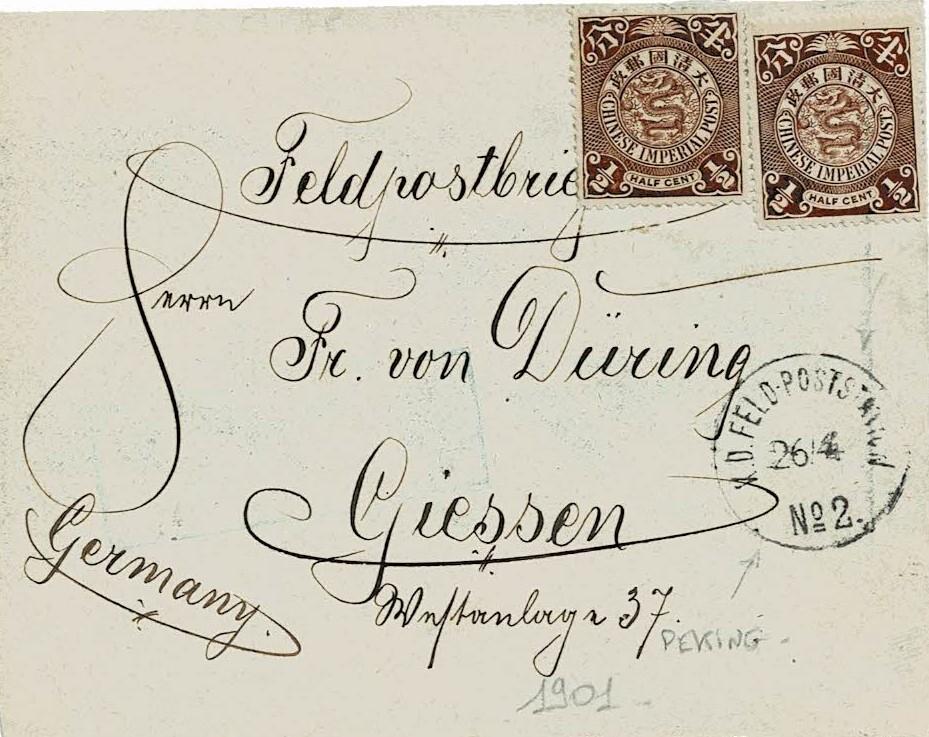 分 半
大清國郵政
CHINESE IMPERIAL POST
1/2 HALF CENT 1/2
分 半
大清國郵政
CHINESE IMPERIAL POST
1/2 HALF CENT 1/2
Feldpostbrie
Herrn
Fr. von Düring
K.D. FELD-POSTSTATION
26/4
No 2.
Giessen
Germany.
Westanlage 37.
PEKING -
1901 -